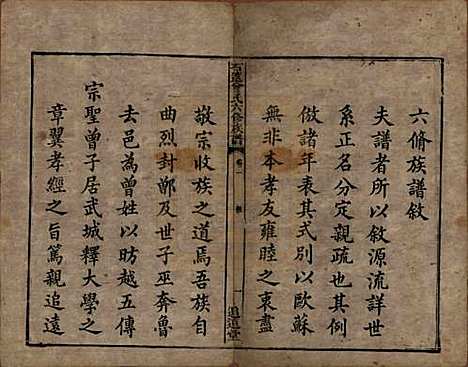 六脩族譜敘
夫譜者所以敘源流詳世
系正名分定親疏也其例
倣諸年表其式別以歐蘇
無非本孝友雍睦之衷盡
曾氏六修族譜
卷一
一
追遠堂
敬宗收族之道焉吾族自
曲烈封鄫及世子巫奔魯
去邑為曾姓以昉越五傳
宗聖曾子居武城釋大學之
章翼孝經之旨篤親追遠